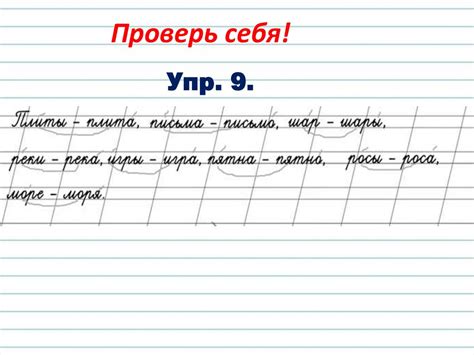 Проверь себя!
Упр. 9.
Пли́ты – плита́, пи́сьма – письмо́, шар – шары́,
ре́ки – река́, и́гры – игра́, пя́тна – пятно́, ро́сы – роса́,
мо́ре – моря́.